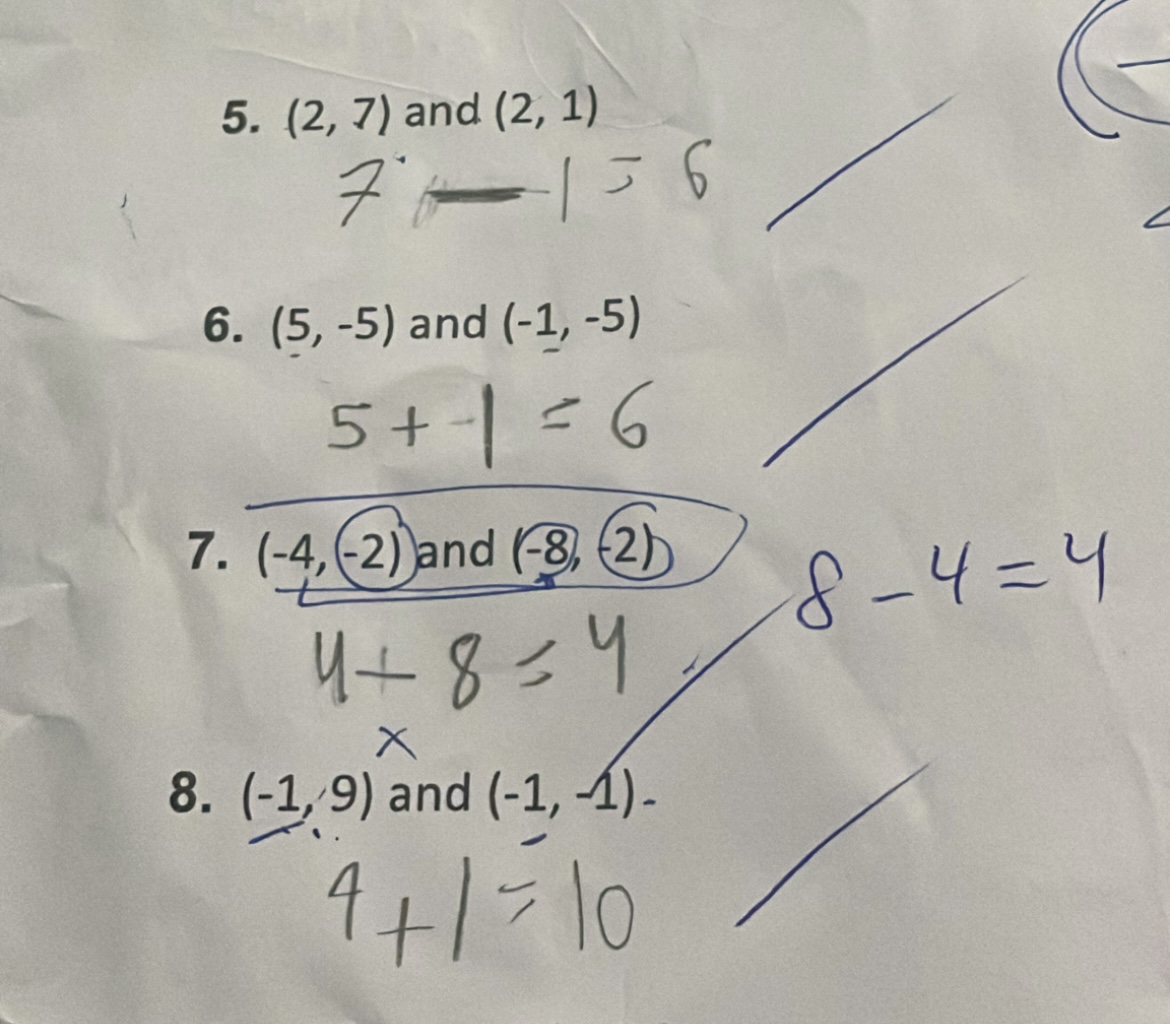 5. (2, 7) and (2, 1)
7 - 1 = 6
6. (5, -5) and (-1, -5)
5 + -1 = 6
7. (-4, -2) and (-8, -2)
8 - 4 = 4
4 + 8 = 4
x
8. (-1, 9) and (-1, -1)
9 + 1 = 10